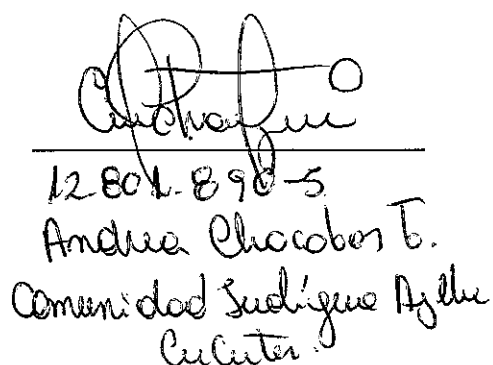 12.801.890-5
Andrea Chocobar T.
Comunidad Indígena Ayllu
CuCuter.